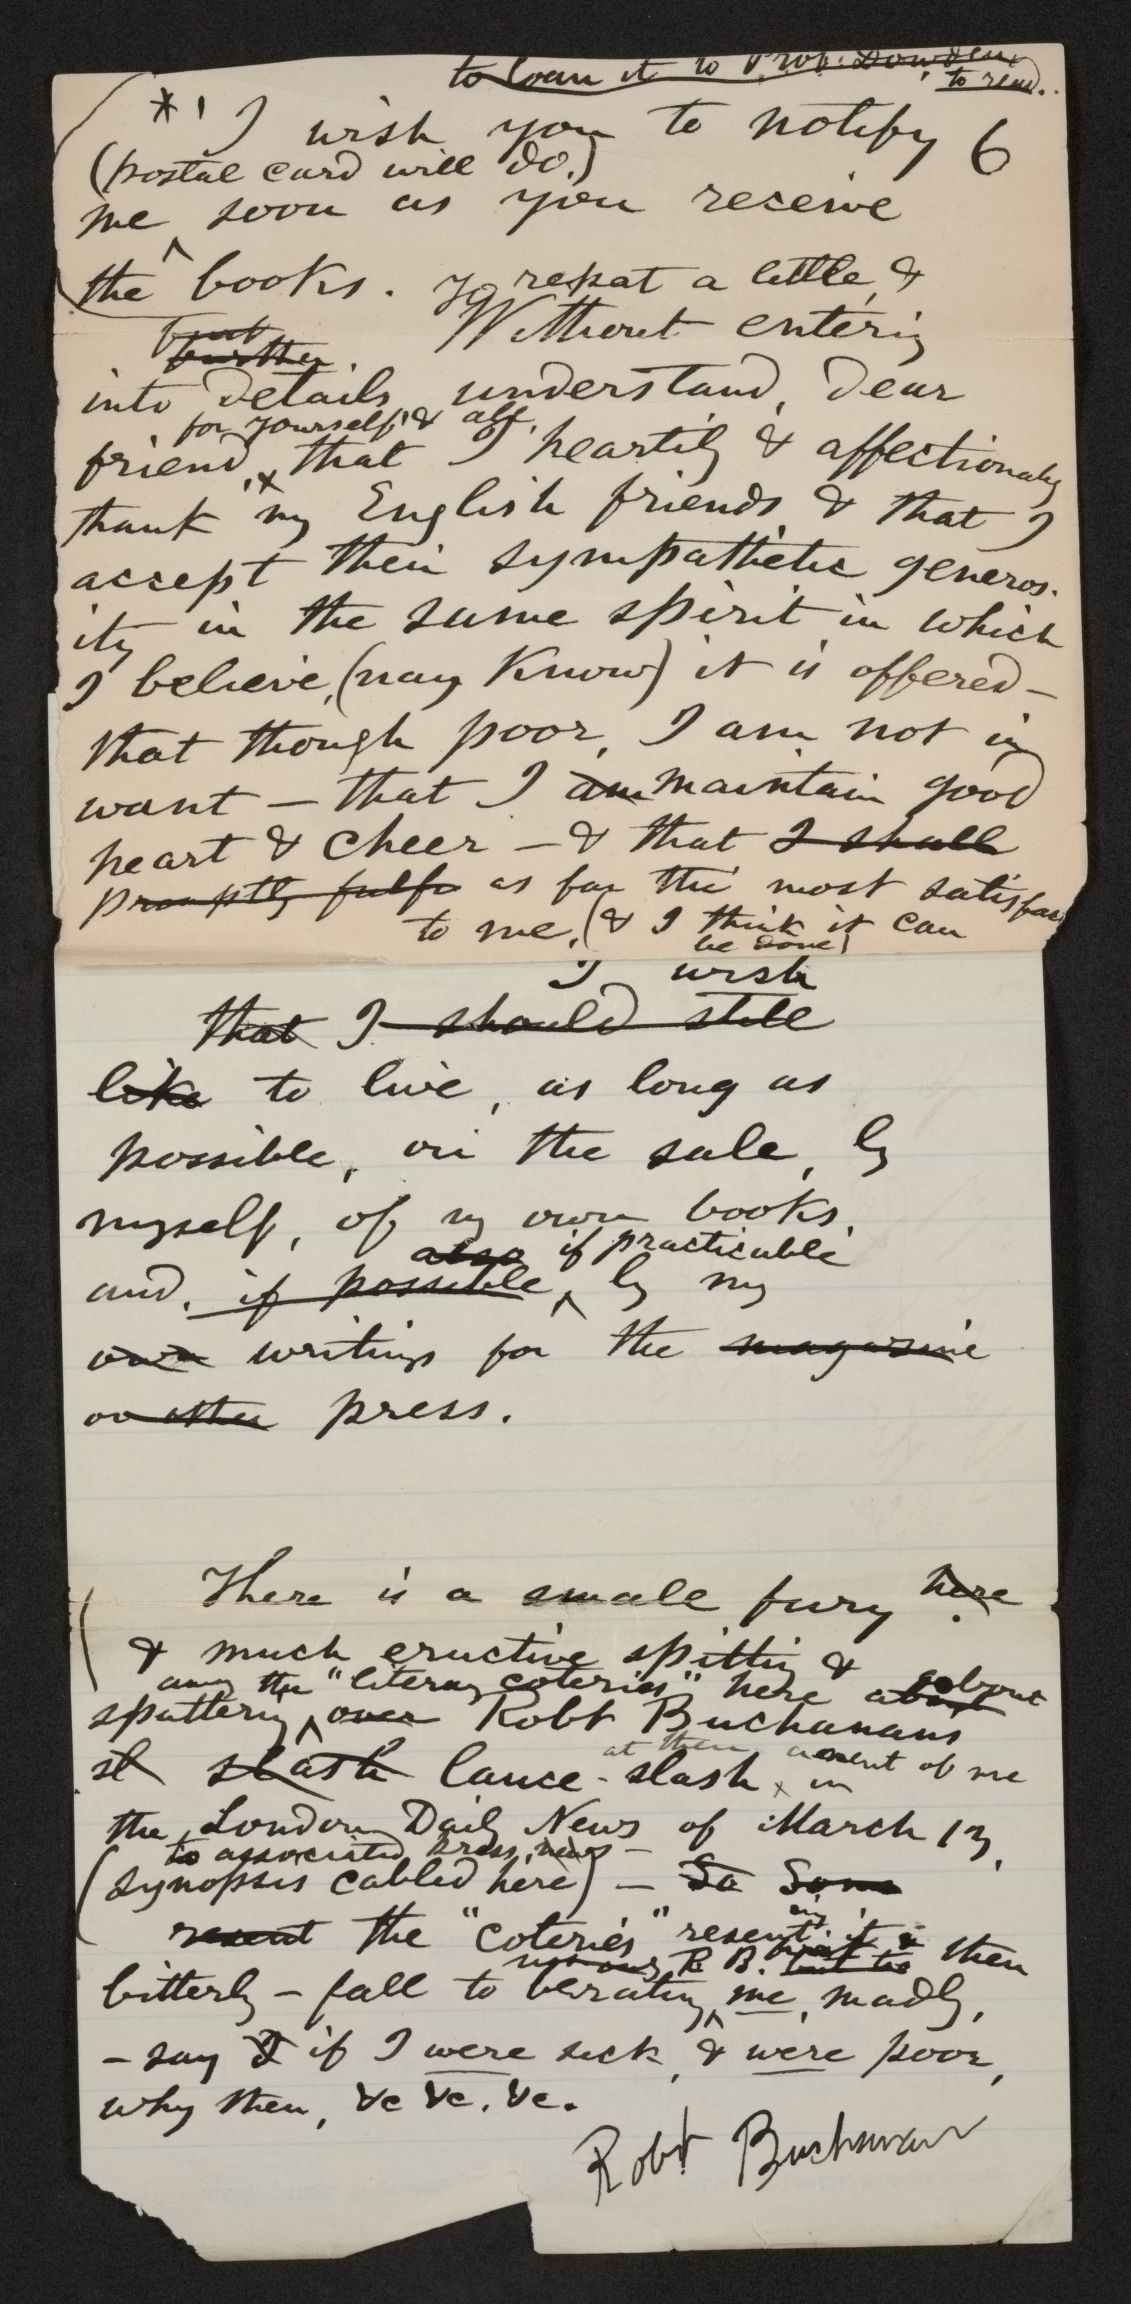 to loan it to Prof. Dowden
to read.
* ' I wish you to notify 6
(postal card will do.)
me soon as you receive
^
the books. To repeat a little, &
but
further. Without enterig
into details, understand, dear
for yourself, & all,
friend, that I heartily & affectionately
thank my English friends, & that I
accept their sympathetic generos-
ity in the same spirit in which
I believe, (nay Know) it is offered—
that though poor, I am not in
want — that I am maintain good
heart & cheer — & that I shall
promptly fulfi as far the most satisfac
to me, (& I think it can
be done)
I wish
that I should still
like to live, as long as
possible, on the sale, by
myself, of my own books,
also if practicable
and, if possible ^ by my
own writings for the magazine
or other press.
There is a small fury here
& much eructive spittig &
among the "literary coteries" here about
sputtering ^ over Robt Buchanans
at them ament of me
sl slash lance-slash x in
the London Daily News of March 13,
to associated press, news —
(synopsis cabled here) — Sa Some
resent the "coteries" resent it
ing
R B. but to then
bitterly — fall to berating ^ me, madly,
— say I if I were sick, & were poor,
why then, &c &c. &c.
Robt Buchanan